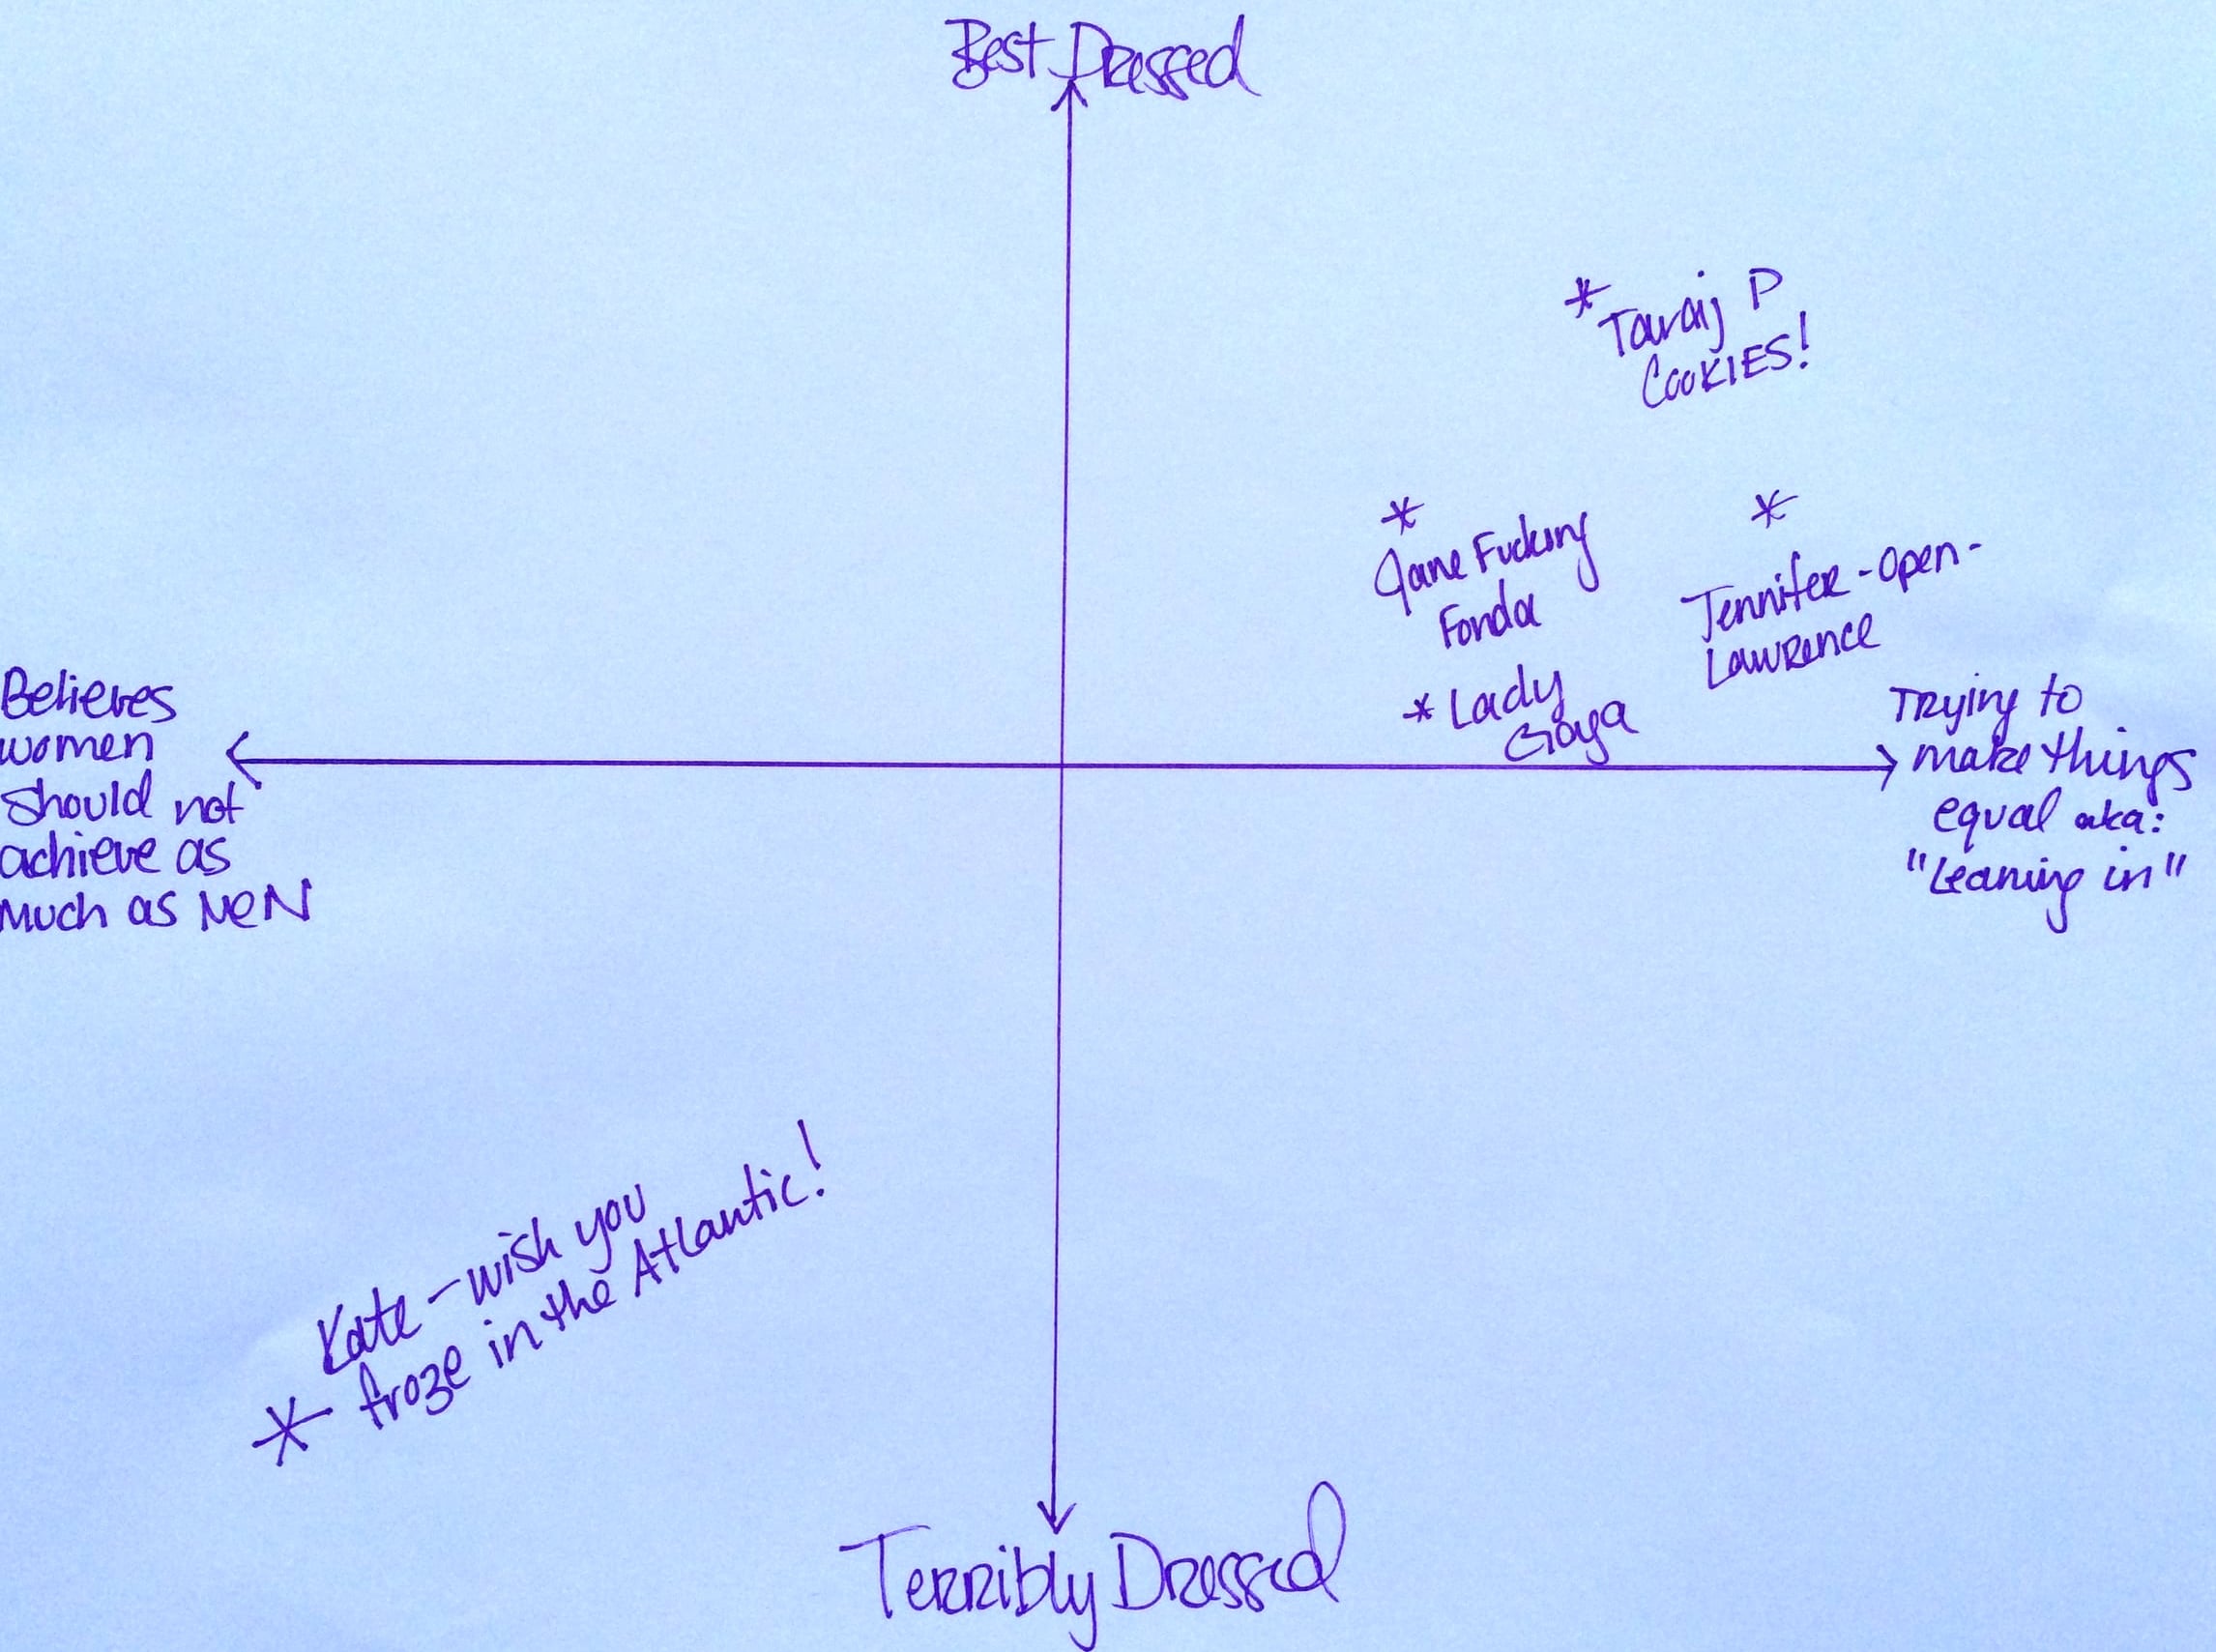 Best Dressed
* Taraij P
COOKIES!
*
Jane Fucking
Fonda
*
Jennifer - Open -
Lawrence
* Lady
Gaga
Believes
women
should not
achieve as
much as MEN
Trying to
make things
equal aka:
"Leaning in"
Kate - wish you
* froze in the Atlantic!
Terribly Dressed